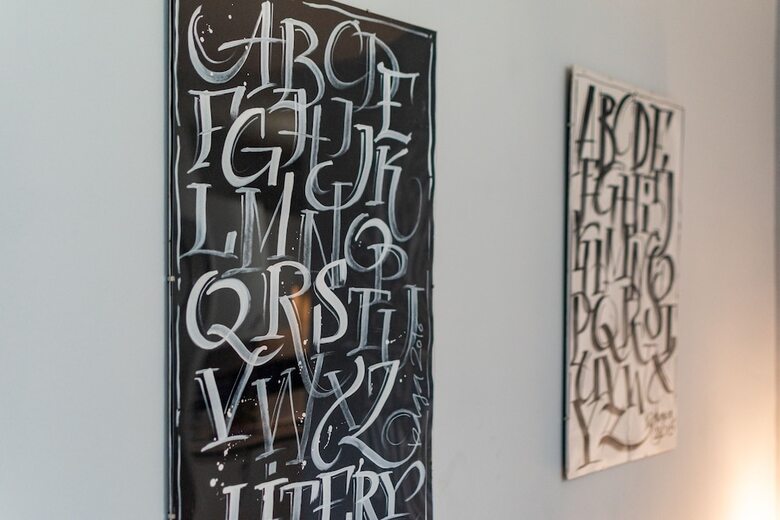 ABCD
EFGHIJ
K
LMNOP
QRSTU
VWXYZ
2016
LITERY
ABCDE
FGHIJ
KLMNO
PQRST
UVWX
YZ